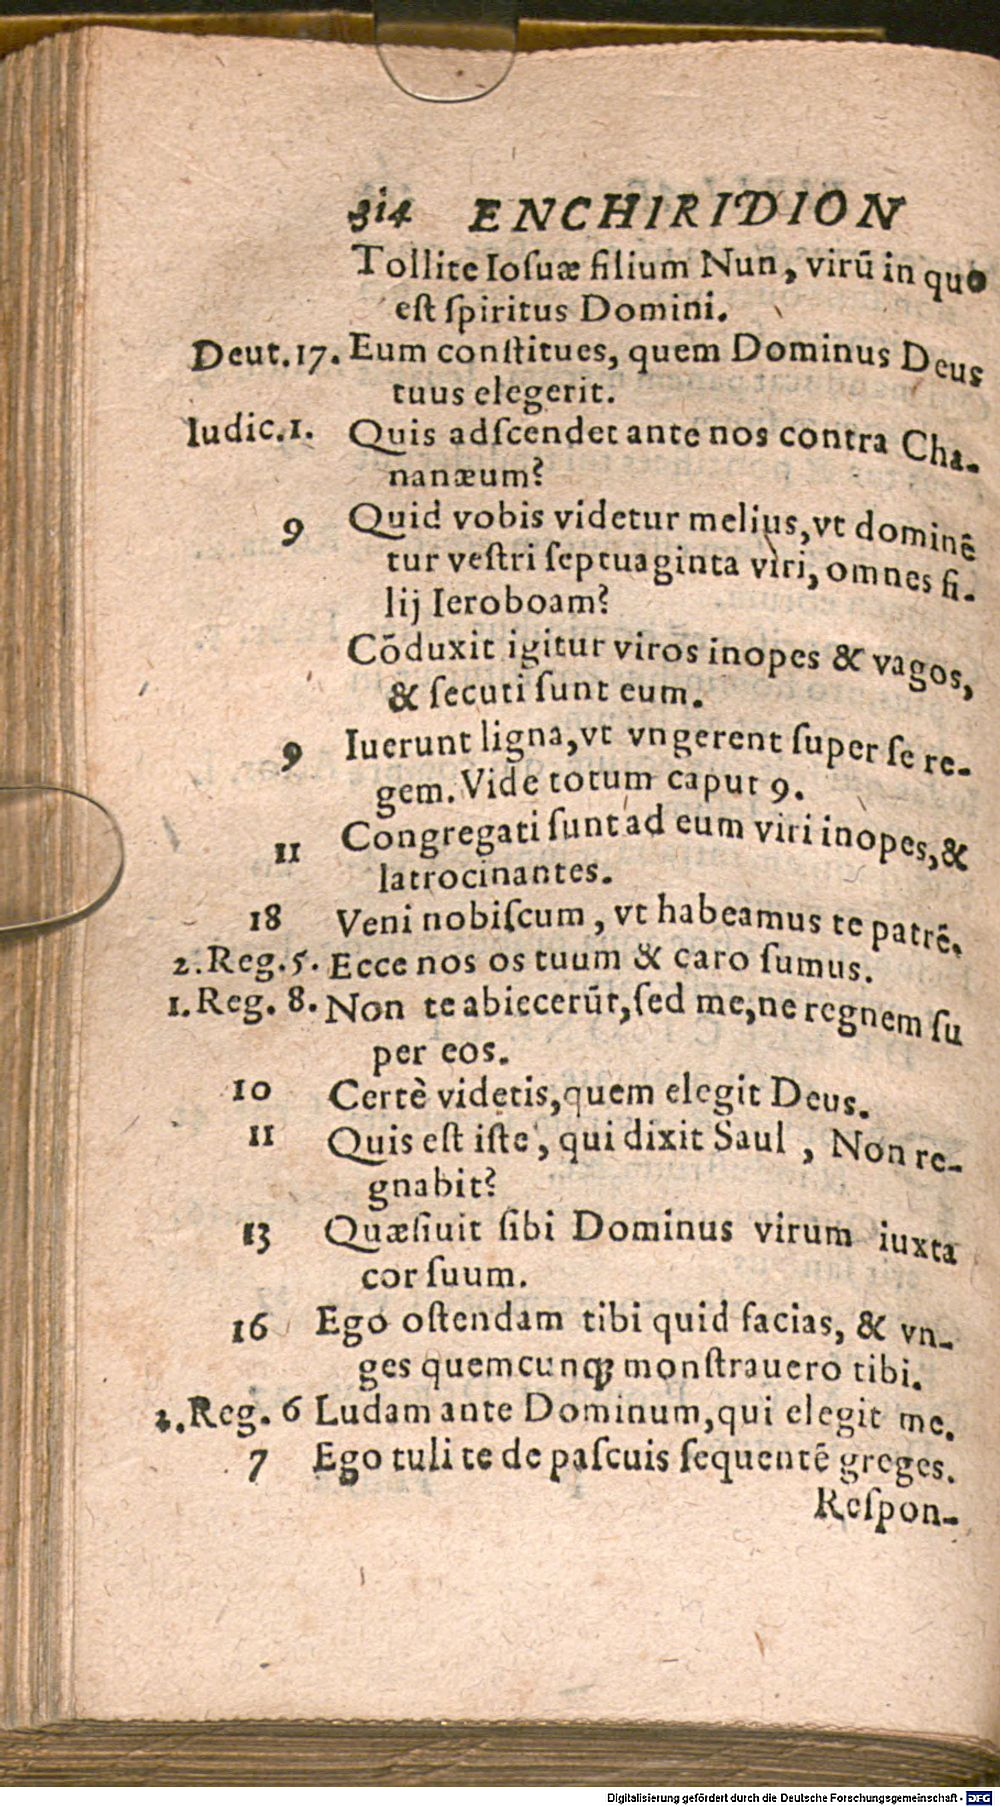 314 ENCHIRIDION
Tollite Ioſuæ filium Nun, virū in quo
eſt ſpiritus Domini.
Deut.17. Eum conſtitues, quem Dominus Deus
tuus elegerit.
Iudic.1. Quis adſcendet ante nos contra Cha-
nanæum?
9 Quid vobis videtur melius, vt dominē
tur veſtri ſeptuaginta viri, omnes fi-
lij Ieroboam?
Cōduxit igitur viros inopes & vagos,
& ſecuti ſunt eum.
9 Iuerunt ligna, vt vngerent ſuper ſe re-
gem. Vide totum caput 9.
11 Congregati ſunt ad eum viri inopes, &
latrocinantes.
18 Veni nobiſcum, vt habeamus te patrē.
2.Reg.5. Ecce nos os tuum & caro ſumus.
1.Reg. 8. Non te abiecerūt, ſed me, ne regnem ſu
per eos.
10 Certè videtis, quem elegit Deus.
11 Quis eſt iſte, qui dixit Saul, Non re-
gnabit?
13 Quæſiuit ſibi Dominus virum iuxta
cor ſuum.
16 Ego oſtendam tibi quid facias, & vn-
ges quemcunq; monſtrauero tibi.
2.Reg. 6 Ludam ante Dominum, qui elegit me.
7 Ego tuli te de paſcuis ſequentē greges.
Reſpon-
Digitalisierung gefördert durch die Deutsche Forschungsgemeinschaft - DFG